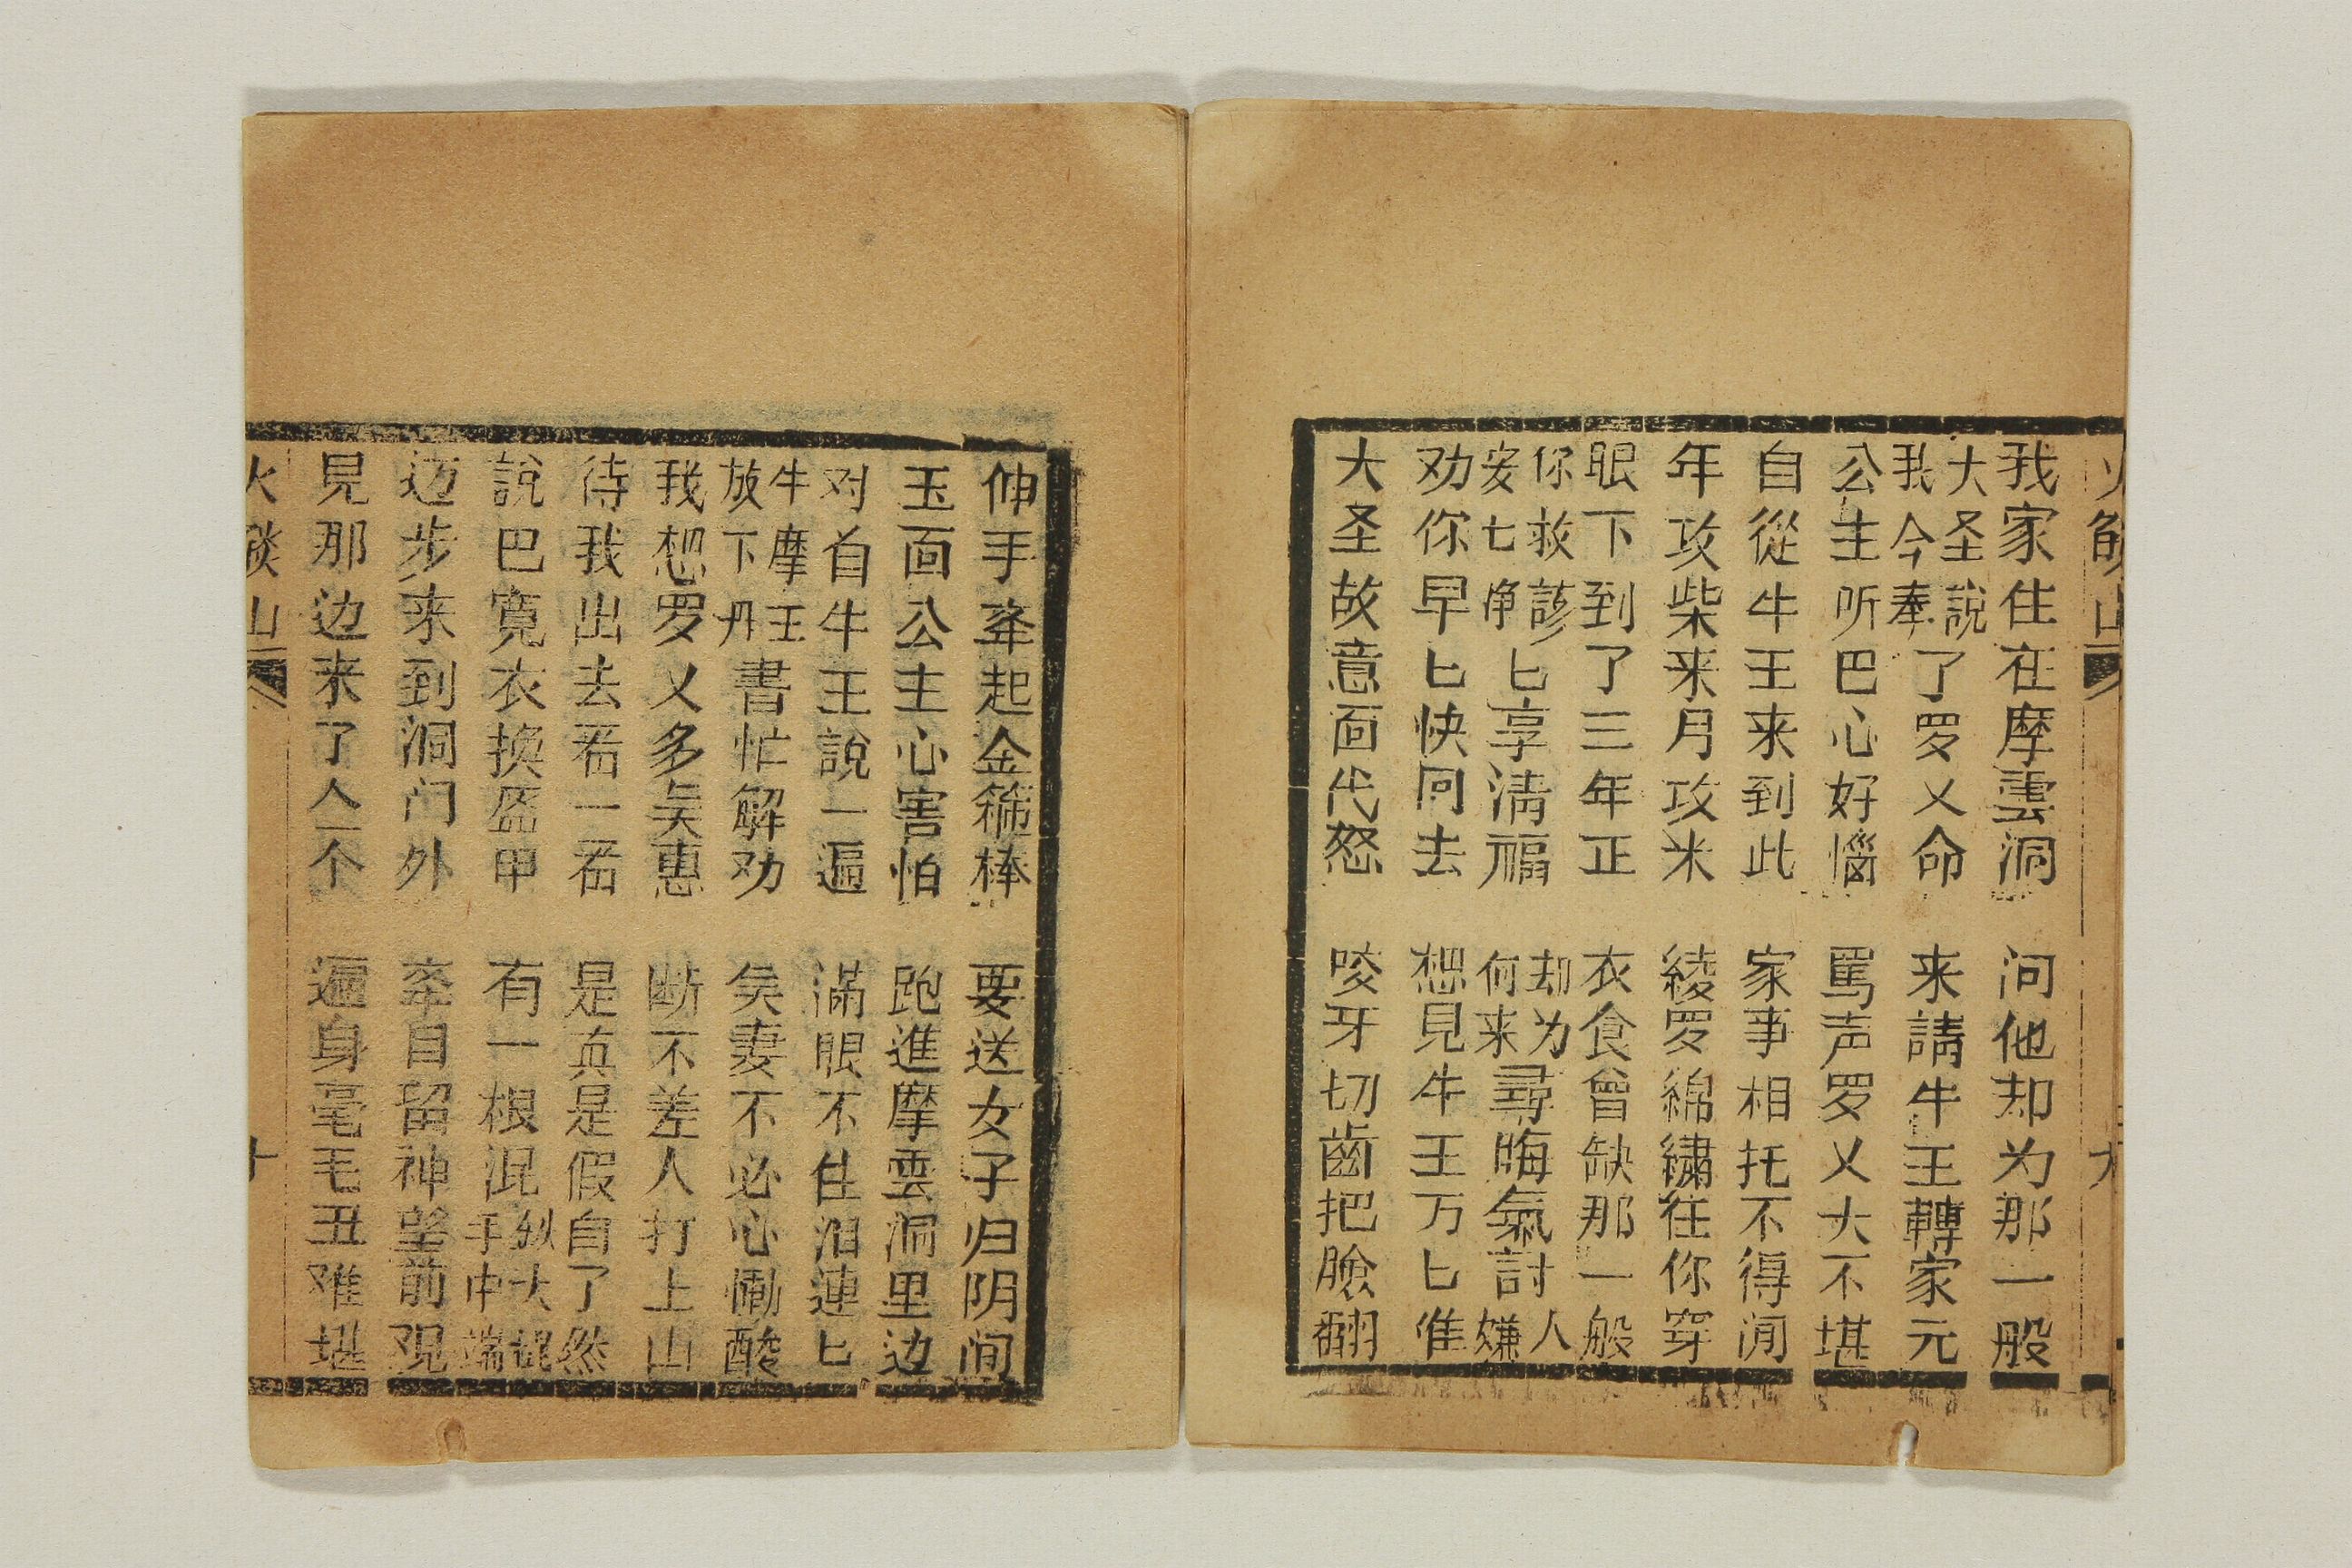 我家住在摩雲洞 问他却为那一般
大圣說我今奉了罗乂命 来請牛王轉家元
公主听巴心好惱 罵声罗乂大不堪
自從牛王来到此 家事相托不得闲
年攻柴来月攻米 綾罗綿繡任你穿
眼下到了三年正 衣食曾缺那一般
你救該安七净匕享清福 却为何来尋晦氣討人嫌
劝你早匕快回去 想見牛王万匕难
大圣故意面代怒 咬牙切齒把臉翻
伸手牽起金箍棒 要送女子归阴间
玉面公主心害怕 跑進摩雲洞里边
对首牛王說一遍 滿眼不住泪連匕
牛摩王放下丹書忙解劝 矣妻不必心慟酸
我想罗乂多矣惠 断不差人打上山
待我出去看一看 是真是假自了然
說巴寬衣换盔甲 有一根混大棍手中端
迈步来到洞门外 牽目留神望前观
見那边来了人一个 遍身毫毛丑难堪
火燄山 十